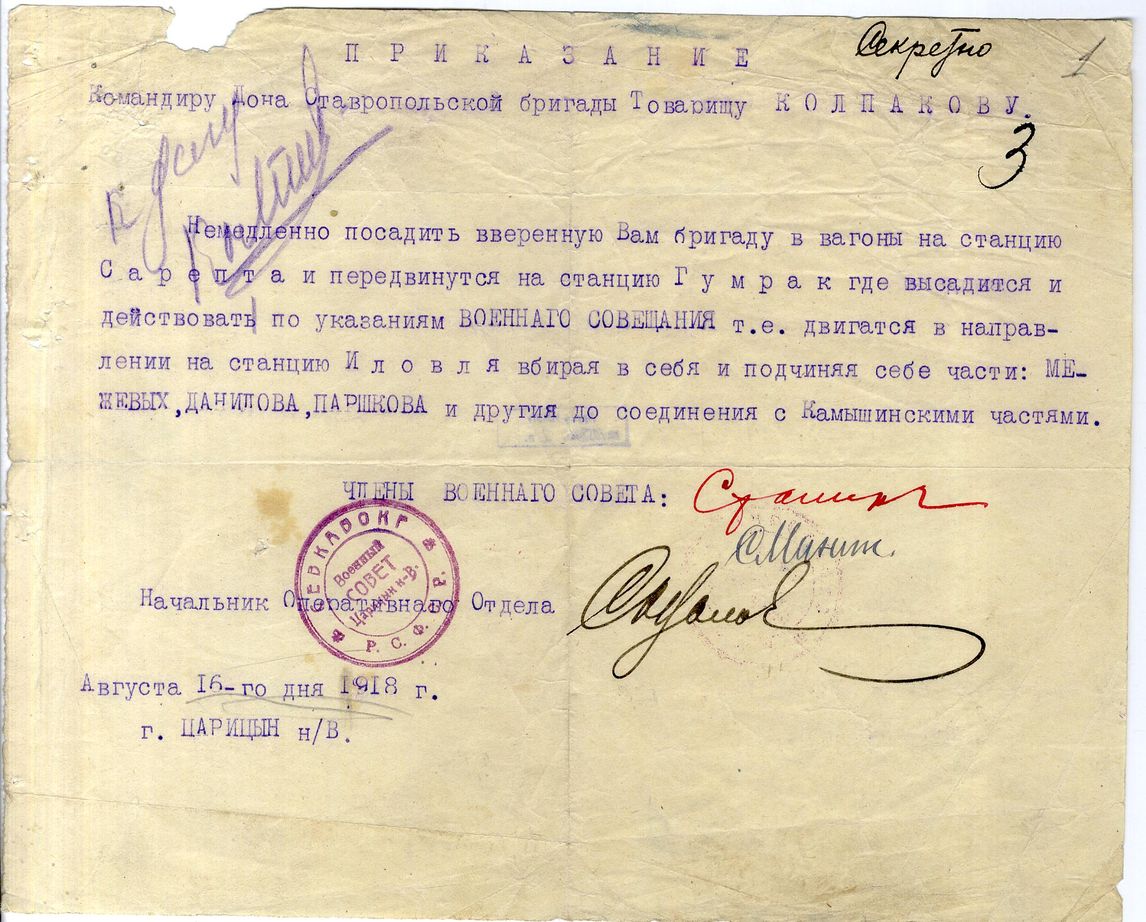 Секретно
1
П Р И К А З А Н И Е
Командиру Дона Ставропольской бригады Товарищу К О Л П А К О В У.
3
К делу
Немедленно посадить вверенную Вам бригаду в вагоны на станцию
С а р е п т а и передвинутся на станцию Г у м р а к где высадится и
действовать по указаниям ВОЕННАГО СОВЕЩАНИЯ т.е. двигатся в направ-
лении на станцию И л о в л я вбирая в себя и подчиняя себе части: МЕ-
ЖЕВЫХ,ДАНИЛОВА,ПАРШКОВА и другия до соединения с Камышинскими частями.
ЧЛЕНЫ ВОЕННАГО СОВЕТА: Сталин
СМинин.
СЕВКАВОКР
Военный
СОВЕТ
Царицын н-В.
Р. С. Ф. С. Р.
Начальник Оперативнаго Отдела
Августа 16-го дня 1918 г.
г. ЦАРИЦЫН н/В.